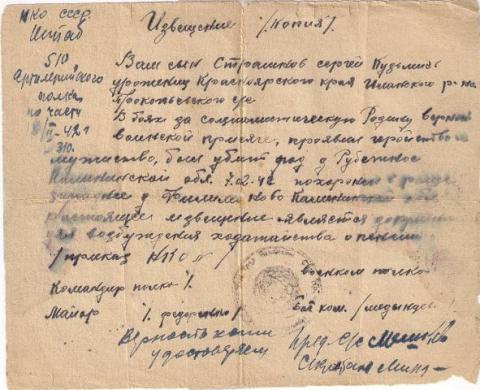 НКО СССР
Штаб
510
Артиллерийского
полка
по части
8/II-42 г
№ 310.
Извещение /Копия/.
Ваш сын Страшков Сергей Кузьмич
уроженец Красноярского края Иланского р-на
Прокопьевского с/с
В боях за социалистическую Родину верный
воинской присяге, проявив геройство и
мужество, был убит под д Рубежное
Калининской обл. 7.02.42 похоронен
д Калининской обл
настоящее извещение является документом
для возбуждения ходатайства о пенсии
/приказ НКО №
Командир полка /. военком полка
Майор /. Федоренко/ бат ком.
Верность копии
удостоверяем
Пред. с/с
Секретарь